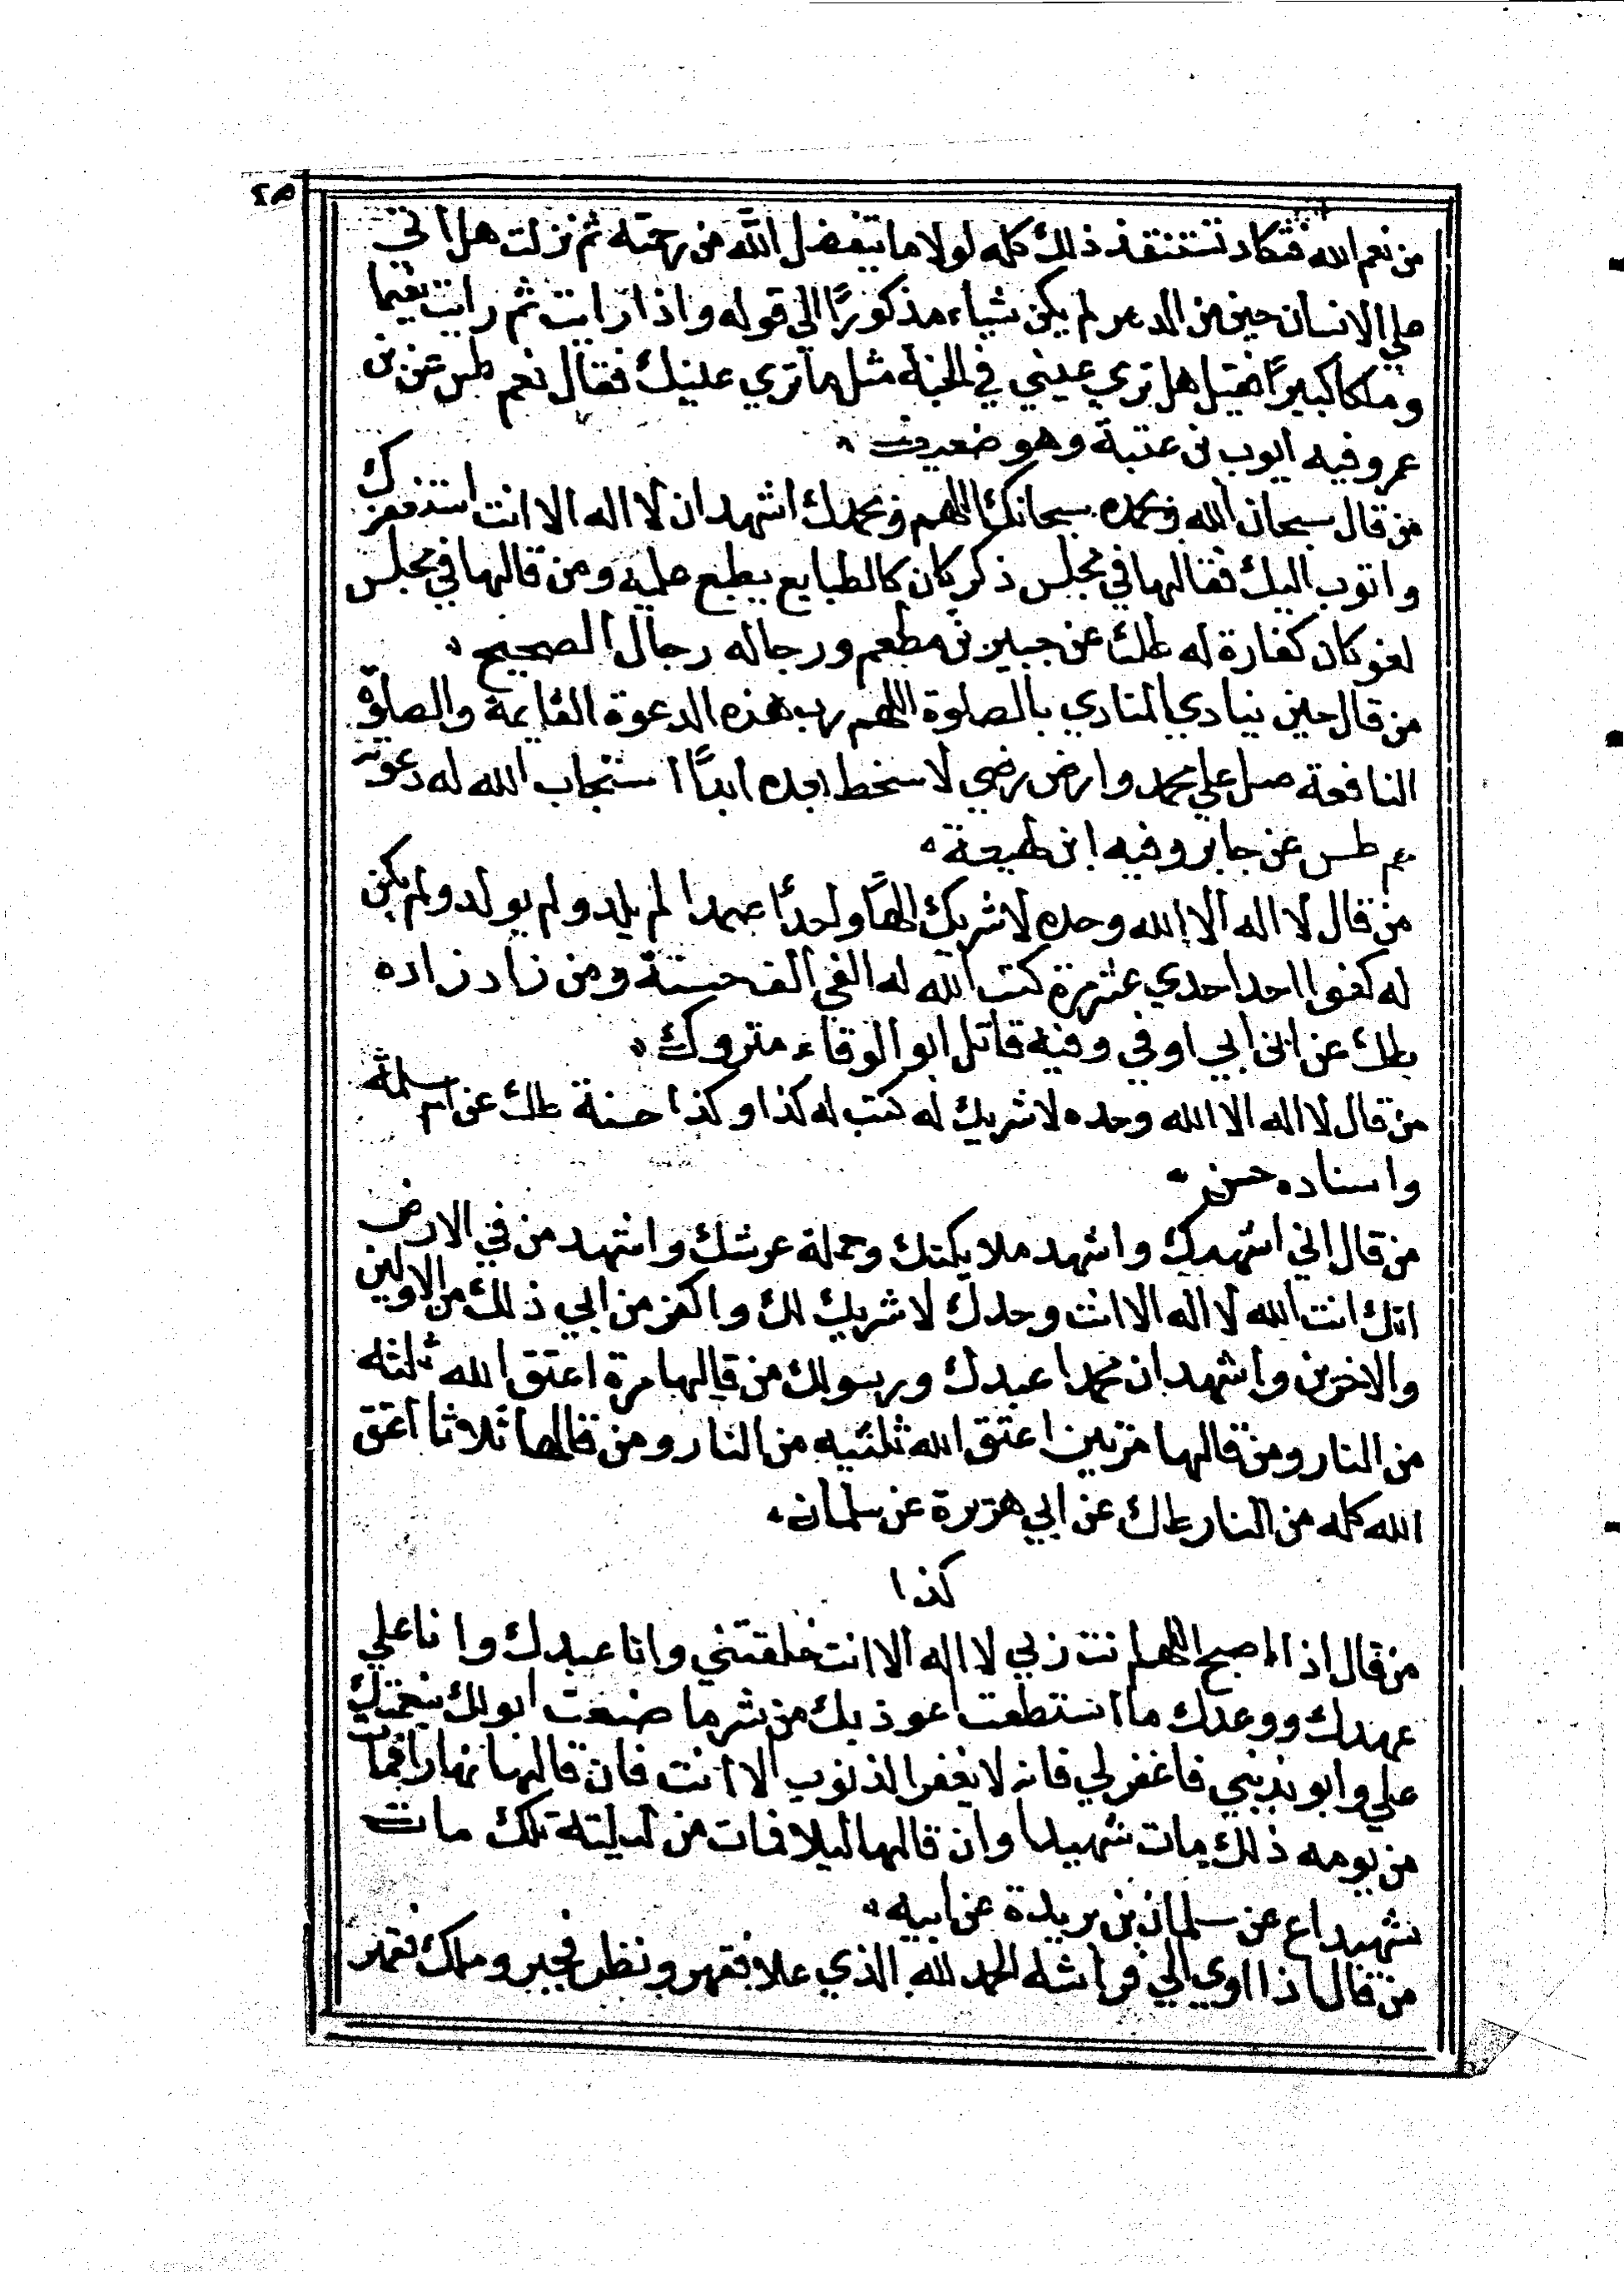 ٢٥
من نعم الله فتكاد تستنقذ ذلك كله لولا ما يتفضل الله من رحمته ثم نزلت هل اتي
علي الانسان حين من الدهر لم يكن شياء مذكورًا الي قوله واذا رايت ثم رايت نعيما
وملكا كبيرًا فقيل هل تري عيني في الجنة مثل ما تري عينك فقال نعم طس عن بن
عمر وفيه ايوب بن عتبة وهو ضعيف
من قال سبحان الله وبحمده سبحانك اللهم وبحمدك اشهد ان لا اله الا انت استغفرك
واتوب اليك فقالها في مجلس ذكر كان كالطابع يطبع عليه ومن قالها في مجلس
لغو كان كفارة له طك عن جبير بن مطعم ورجاله رجال الصحيح
من قال حين ينادي المنادي بالصلوة اللهم رب هذه الدعوة القايمة والصلوة
النافعة صل علي محمد وارض رضي لا سخط بعده ابدًا استجاب الله له دعوته
حم طس عن جابر وفيه ابن لهيعة
من قال لا اله الا الله وحده لا شريك الهًا واحدًا صمدا لم يلد ولم يولد ولم يكن
له كفوا احد احدي عشرمرة كتب الله له الفي الف حسنة ومن زاد زاده
طك عن ابن ابي اوفي وفيه قاتل ابو الوقاء متروك
من قال لا اله الا الله وحده لا شريك له كتب له كذا وكذا حسنة طك عن ام سلمة
واسناده حسن
من قال اني اشهدك واشهد ملايكتك وحملة عرشك واشهد من في الارض
انك انت الله لا اله الا انت وحدك لا شريك لك واكفر من ابي ذلك من الاولين
والاخرين واشهد ان محمدا عبدك ورسولك من قالها مرة اعتق الله ثلثه
من النار ومن قالها مرتين اعتق الله ثلثيه من النار ومن قالها ثلاثا اعتق
الله كله من النار طك عن ابي هريرة عن سلمان
كذا
من قال اذا اصبح اللهم انت ربي لا اله الا انت خلقتني وانا عبدك وانا علي
عهدك ووعدك ما استطعت اعوذ بك من شر ما صنعت ابو لك بنعمتك
علي وابو بذنبي فاغفر لي فانه لا يغفر الذنوب الا انت فان قالها نهارا فمات
من يومه ذلك مات شهيدا وان قالها ليلا فمات من ليلته تلك مات
شهيدا ع عن سلمان بن بريدة عن ابيه
من قال اذا اوي الي فراشه الحمد لله الذي علا فقهر ونظر فجبر وملك فقهر